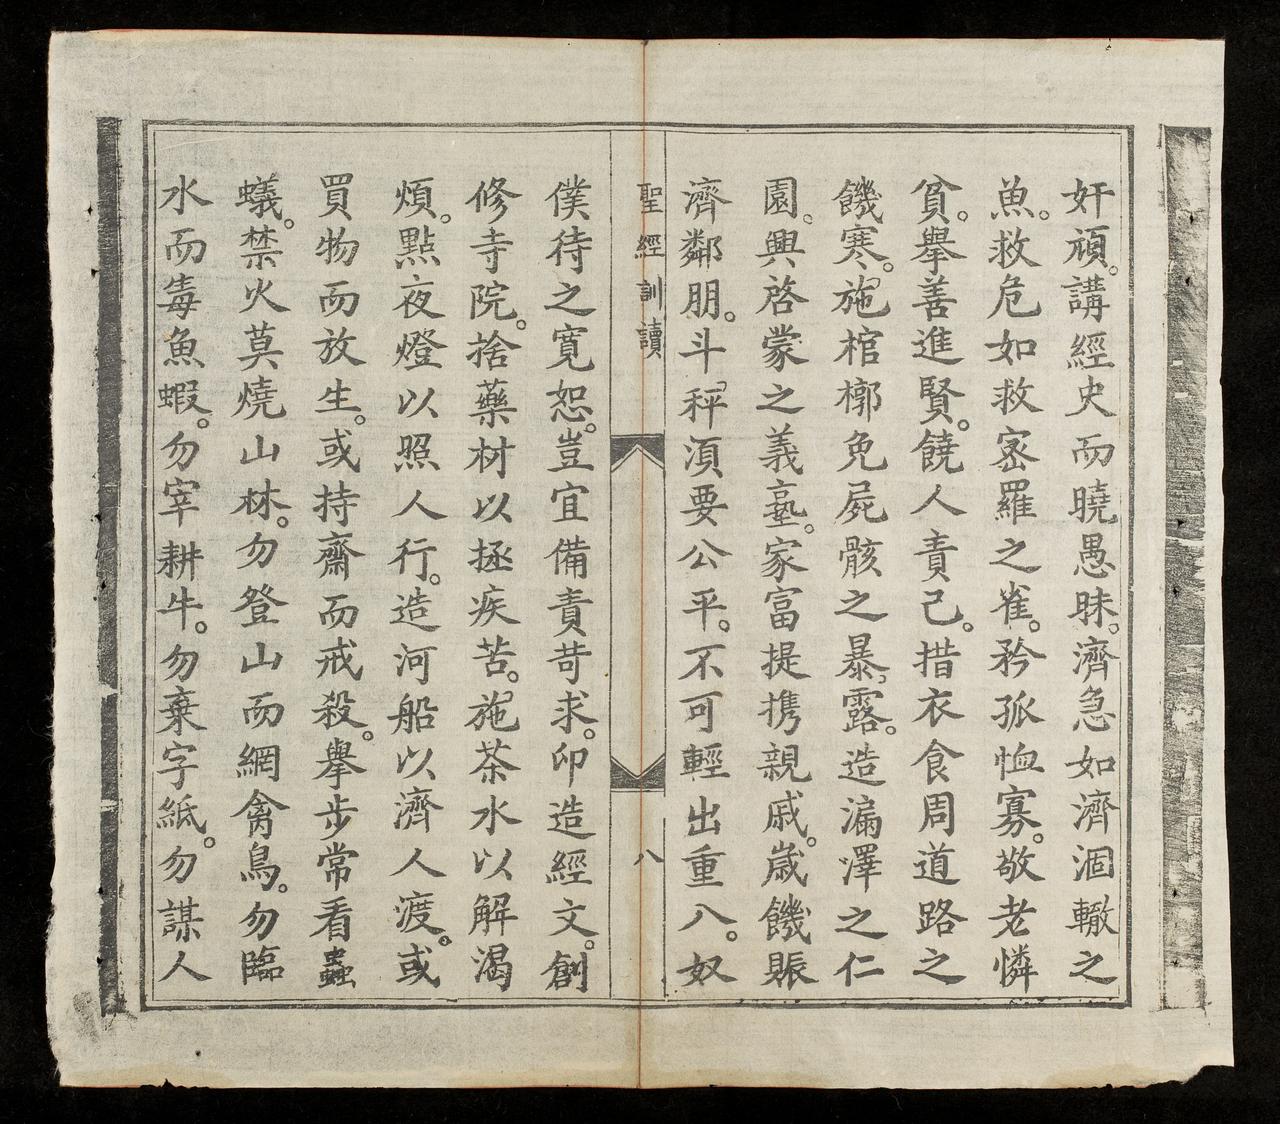 奸頑。講經史而曉愚昧。濟急如濟涸轍之
魚。救危如救密羅之雀。矜孤恤寡。敬老憐
貧。舉善進賢。饒人責己。措衣食周道路之
饑寒。施棺槨免屍骸之暴露。造漏澤之仁
園。興啓蒙之義塾。家富提携親戚。歲饑賑
濟鄰朋。斗秤須要公平。不可輕出重入。奴
聖經訓讀
八
僕待之寬恕。豈宜備責苛求。印造經文。創
修寺院。捨藥材以拯疾苦。施茶水以解渴
煩。點夜燈以照人行。造河船以濟人渡。或
買物而放生。或持齋而戒殺。舉步常看蟲
蟻。禁火莫燒山林。勿登山而網禽鳥。勿臨
水而毒魚蝦。勿宰耕牛。勿棄字紙。勿謀人